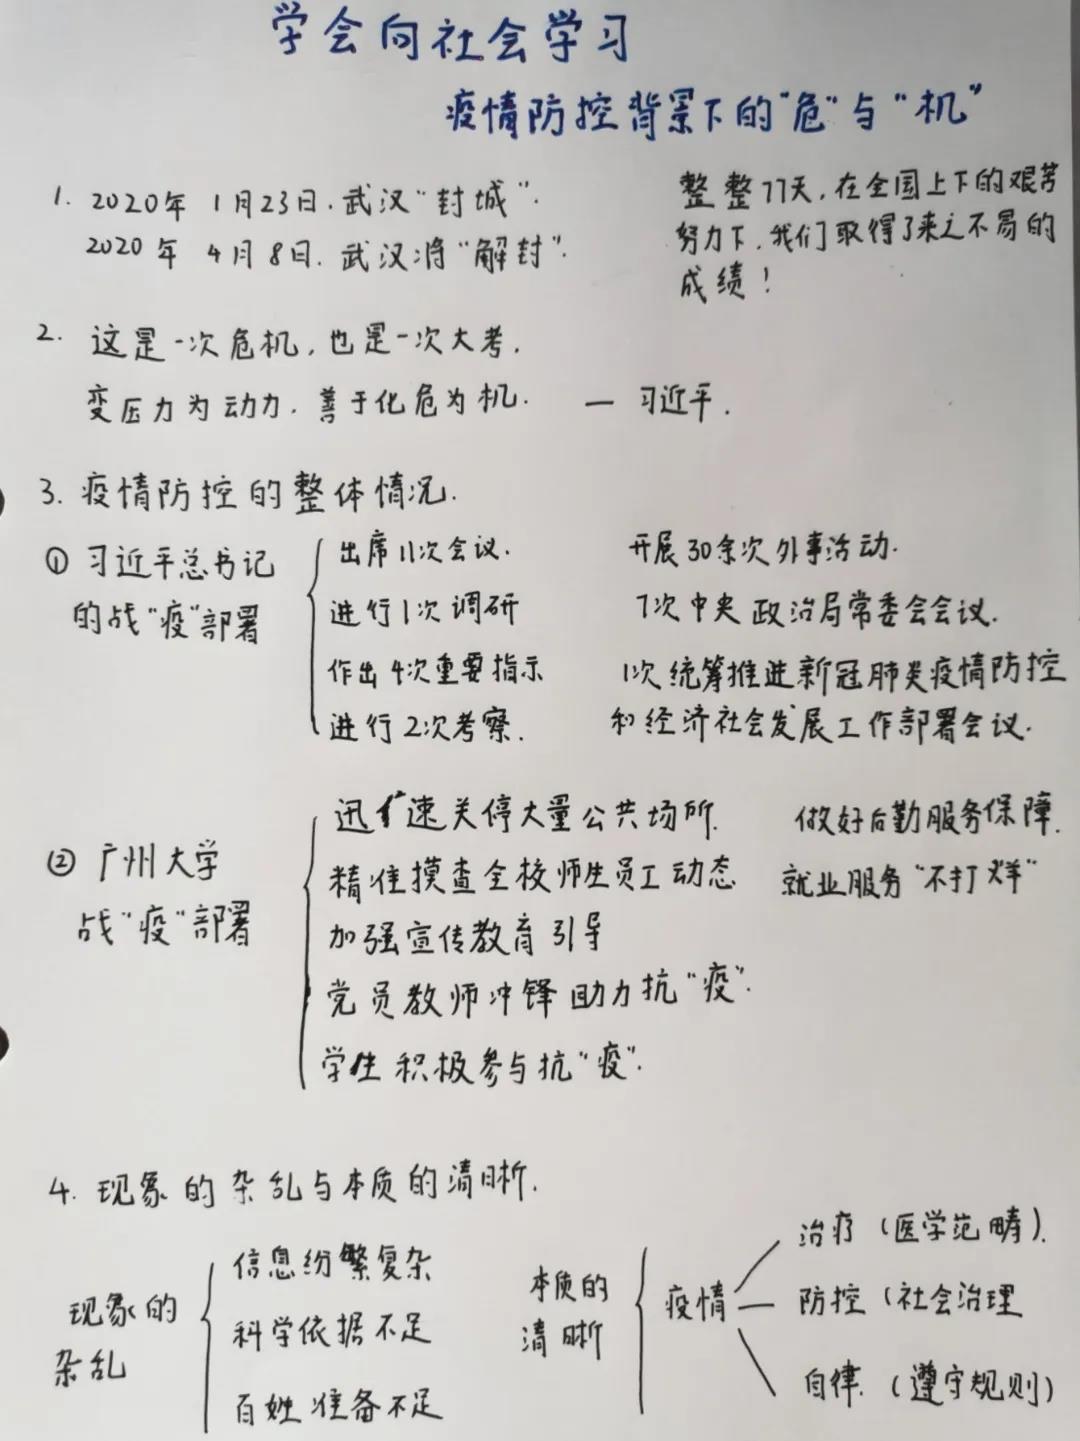 学会向社会学习
疫情防控背景下的"危"与"机"
1. 2020年1月23日.武汉"封城".
2020年4月8日.武汉将"解封".
整整77天,在全国上下的艰苦
努力下,我们取得了来之不易的
成绩!
2. 这是一次危机,也是一次大考.
变压力为动力.善于化危为机. — 习近平.
3. 疫情防控的整体情况.
① 习近平总书记
的战"疫"部署
出席11次会议.
进行1次调研
作出4次重要指示
进行2次考察.
开展30余次外事活动.
7次中央政治局常委会会议.
1次统筹推进新冠肺炎疫情防控
和经济社会发展工作部署会议.
② 广州大学
战"疫"部署
迅速关停大量公共场所.
精准摸查全校师生员工动态
加强宣传教育引导
党员教师冲锋助力抗"疫".
学生积极参与抗"疫".
做好后勤服务保障.
就业服务"不打烊"
4. 现象的杂乱与本质的清晰.
现象的
杂乱
信息纷繁复杂
科学依据不足
百姓准备不足
本质的
清晰
疫情
治疗(医学范畴).
防控(社会治理
自律.(遵守规则)